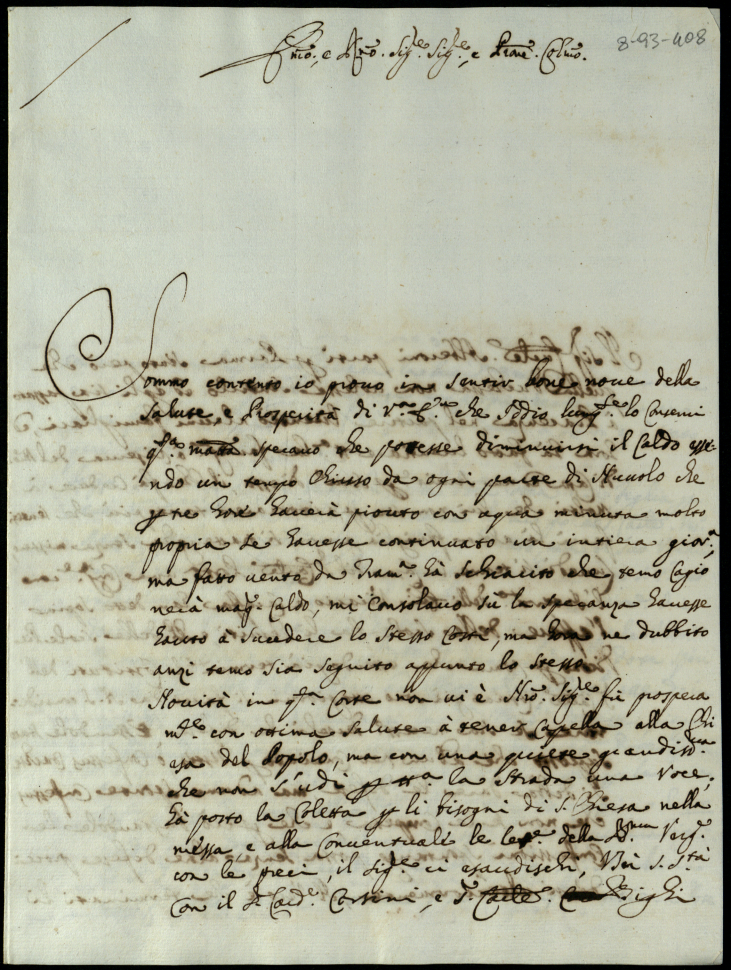 8-93-408
Emo, e Rmo. Sigre. Sigre., e Prone. Colmo.
Sommo contento io provo in sentir bone nove della
Salute e Prosperità di V.a E.za che Iddio lungte. lo Conservi
qsta. matta. speravo che potesse diminuirsi il Caldo esse-
ndo un tempo Chiuso da ogni parte di Nuvolo che
p tre hore haverà piouto con aqua minuta molto
propria se havesse continuato un intiera gior.a,
ma fatto vento da Tram.a hà schiarito che temo Cagio
nerà mag.r Caldo, mi Consolavo sù la speranza havesse
hauto à sucedere lo stesso Costì, ma hora ne dubbito
anzi temo sia seguito appunto lo stesso.
Novità in qsta. Corte non vi è Nro. Sigre. fù prospera
mte. con ottima salute à tener Capella alla Chi
esa del Popolo, ma con una quiete grandissma
che non s'udì p tta. la strada una voce,
hà posto la Coletta p li bisogni di S. Chiesa nella
messa e alla Conventuale le della Bma Verg.
con le preci, il Sigre. ci esaudischi, S. Stà
Con il Sr. Card.e Corsini, e Sr. Bighi